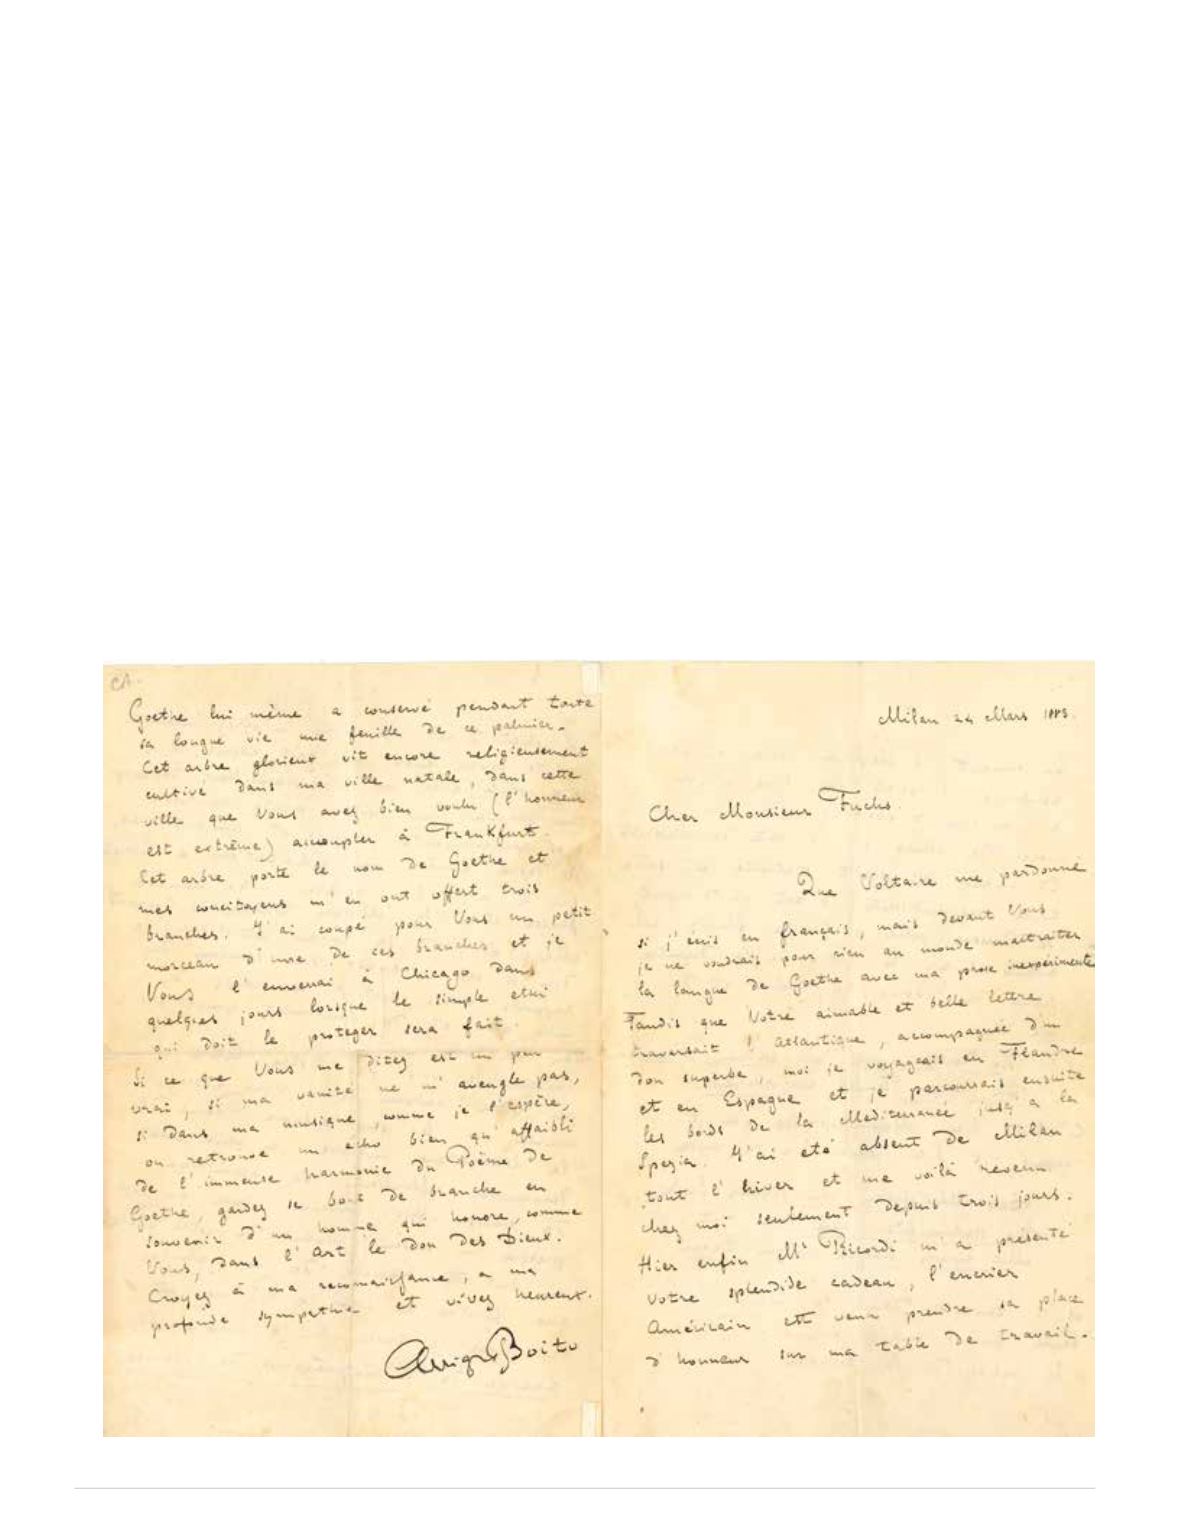 CA.
Goethe lui même a conservé pendant toute
sa longue vie une feuille de ce palmier.
Cet arbre glorieux vit encore religieusement
cultivé dans ma ville natale, dans cette
ville que Vous avez bien voulu (l'honneur
est extrême) accoupler à Frankfurt.
Cet arbre porte le nom de Goethe et
mes concitoyens m'en ont offert trois
branches. J'ai coupé pour Vous un petit
morceau d'une de ces branches et je
Vous l'enverrai à Chicago dans
quelques jours lorsque le simple etui
qui doit le proteger sera fait.
Si ce que Vous me ditez est un peu
vrai, si ma vanité ne m'aveugle pas,
si dans ma musique, comme je l'espère,
on retrouve un echo bien qu'affaibli
de l'immense harmonie du Poème de
Goethe, gardez ce bout de branche en
souvenir d'un homme qui honore, comme
Vous, dans l'Art le Don des Dieux.
Croyez à ma reconnaissance, a ma
profonde sympathie et vivez heureux.
Arrigo Boito
Milan 24 Mars 1883.
Cher Monsieur Fuchs.
Que Voltaire me pardonne
si j'écris en français, mais devant Vous
je ne voudrais pour rien au monde maltraiter
la langue de Goethe avec ma prose inexpérimentée
Tandis que Votre aimable et belle lettre
traversait l'Atlantique, accompagnée d'un
don superbe, moi je voyageais en Flandre
et en Espagne et je parcourais ensuite
les bords de la Mediterranée jusq'a la
Spezia. J'ai eté absent de Milan
tout l'hiver et me voilà revenu
chez moi seulement depuis trois jours.
Hier enfin Mr Ricordi m'a présenté
Votre splendide cadeau, l'encrier
Américain est venu prendre sa place
d'honneur sur ma table de travail.